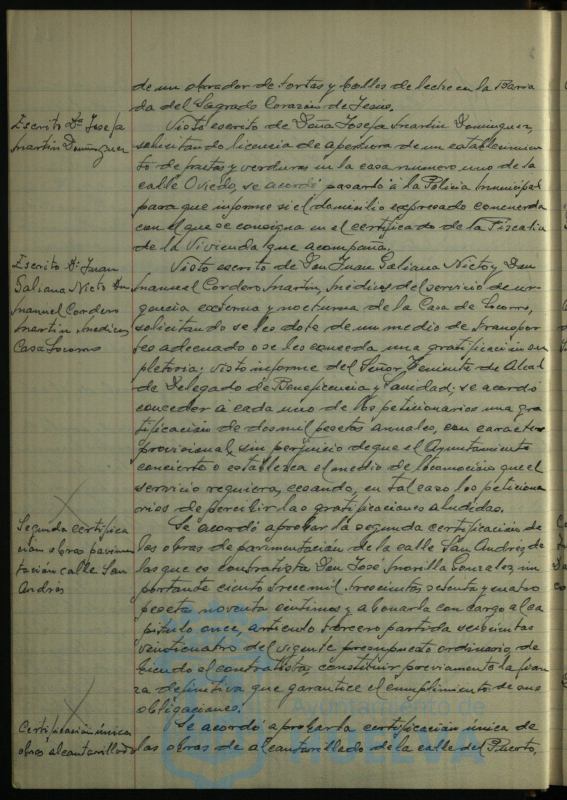 de un obrador de tortas y bollos de leche en la Barria
da del Sagrado Corazón de Jesús.
Escrito Dª Josefa
Martín Domínguez
Visto escrito de Doña Josefa Martín Domínguez,
solicitando licencia de apertura de un establecimien
to de frutas y verduras en la casa numero uno de la
calle Oviedo, se acordó pasarlo á la Policía Municipal
para que informe si el domicilio expresado concuerda
con el que se consigna en el certificado de la Fiscalía
de la Vivienda que acompaña.
Escrito D. Juan
Galiana Nieto
Manuel Cordero
Martín Médicos
Casa Socorro
Visto escrito de Don Juan Galiana Nieto y Don
Manuel Cordero Martín, Médicos del servicio de ur
gencia externa y nocturna de la Casa de Socorro,
solicitando se les dote de un medio de transpor
tes adecuado o se les conceda una gratificación su
pletoria; visto informe del Señor Teniente de Alcal
de Delegado de Beneficencia y Sanidad; se acordó
conceder á cada uno de los peticionarios una gra
tificación de dos mil pesetas anuales, con caracter
provisional, sin perjuicio de que el Ayuntamiento
concierte o establezca el medio de locomoción que el
servicio requiera, cesando, en tal caso los peticiona
rios de percibir las gratificaciones aludidas.
Segunda certifica
ción obras pavimen
tación calle San
Andrés
Se acordó aprobar la segunda certificación de
las obras de pavimentación de la calle San Andrés, de
las que es contratista Don José Morilla Gonzalez, im
portante ciento trece mil trescientas setenta y cuatro
pesetas noventa centimos y abonarla con cargo al ca
pitulo once, articulo tercero partida seiscientas
veinticuatro del vigente presupuesto ordinario, de
biendo el contratista, constituir previamente la fian
za definitiva que garantice el cumplimiento de sus
obligaciones.
Certificación única
obras alcantarillado
Se acordó aprobar la certificación única de
las obras de alcantarillado de la calle del Puerto,
Ayuntamiento de
HUELVA